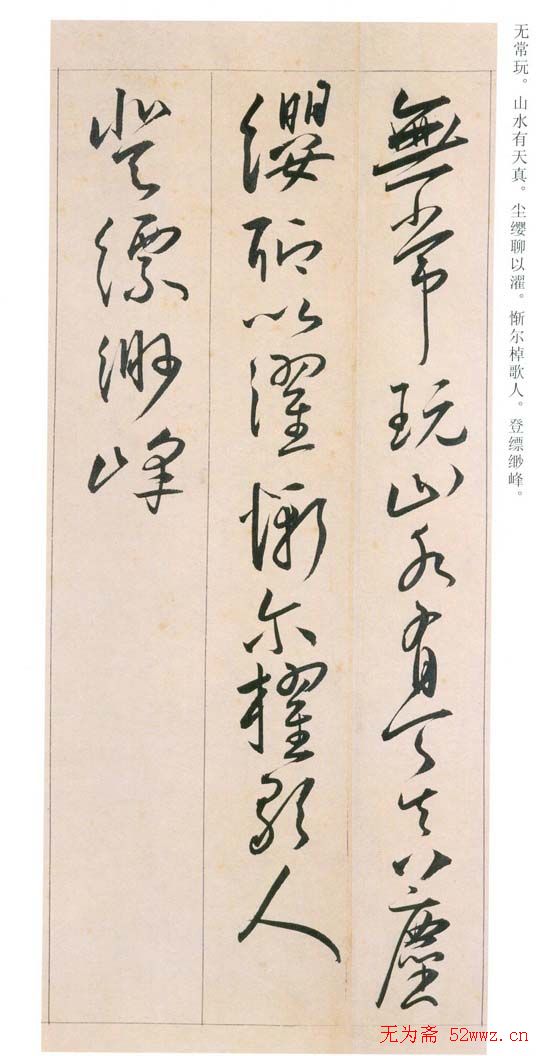 无常玩。山水有天真。尘缨聊以濯。惭尔棹歌人。登缥缈峰。
無常玩山水有天真塵
纓聊以濯慚尔櫂歌人
登縹渺峰
无为斋 52wwz.cn